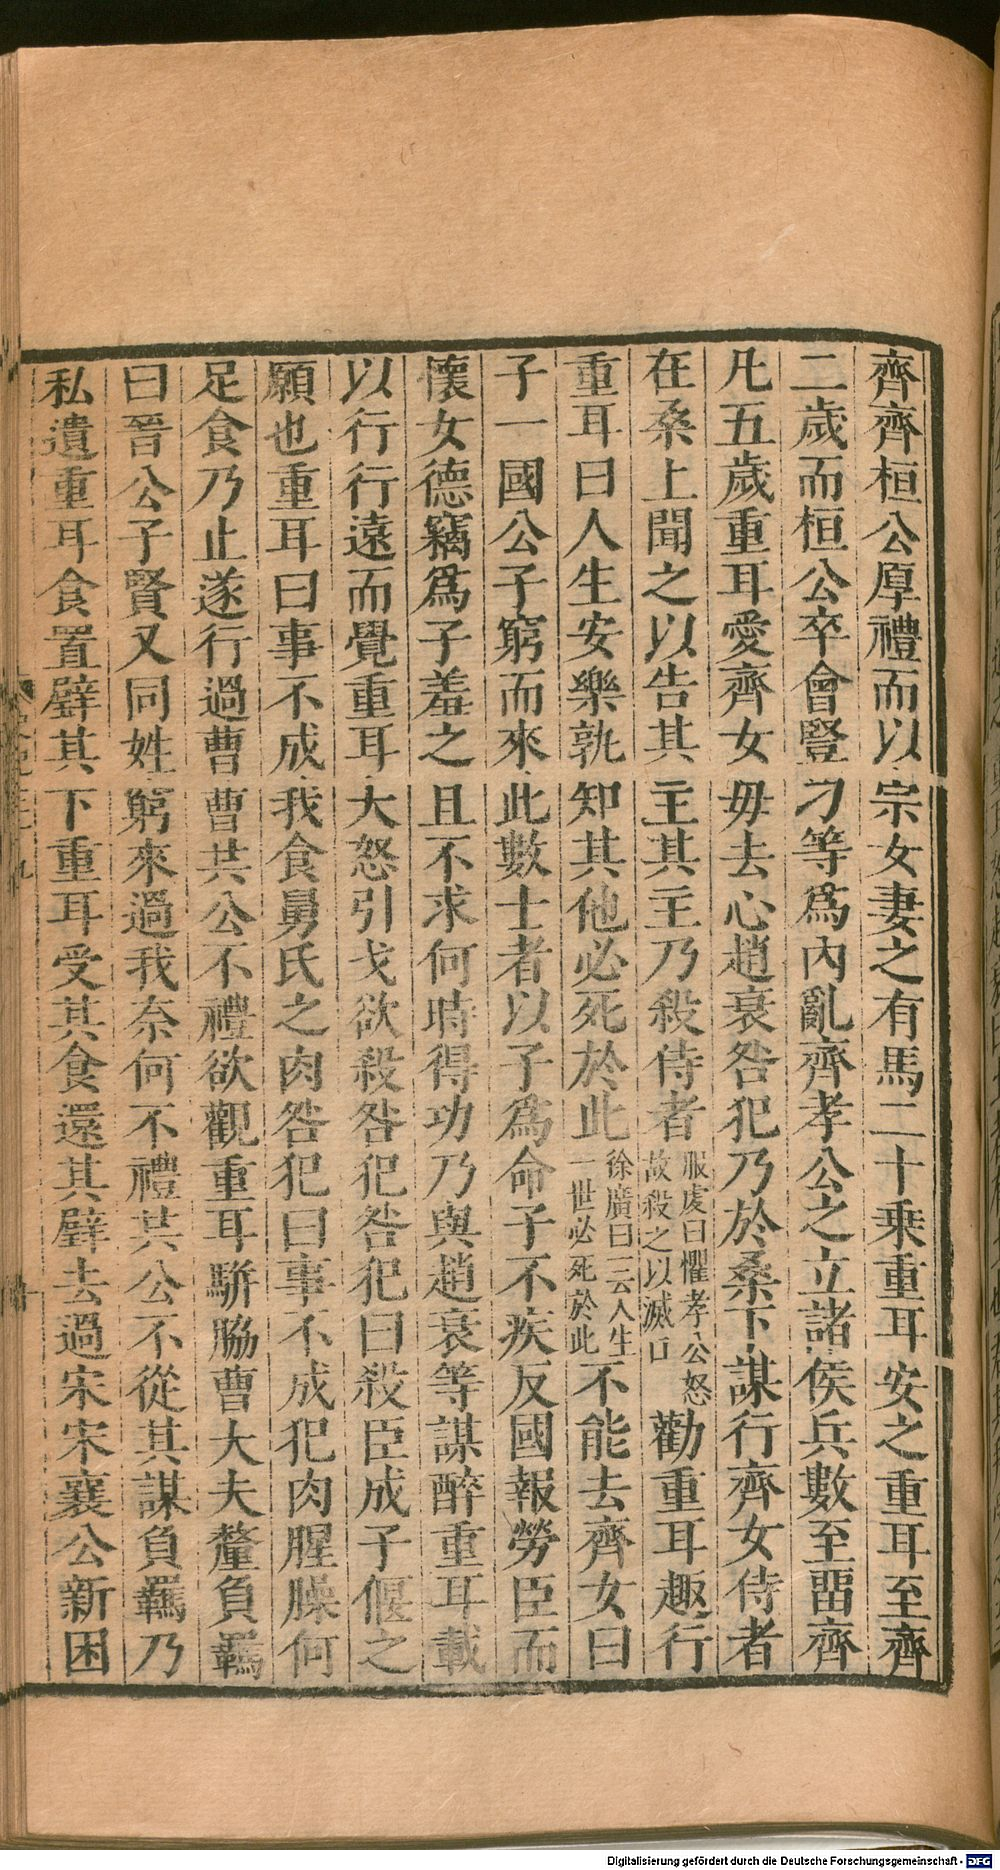 齊齊桓公厚禮而以宗女妻之有馬二十乗重耳安之重耳至齊
二歲而桓公卒會豎刁等爲內亂齊孝公之立諸侯兵數至畱齊
凡五歲重耳愛齊女毋去心趙衰咎犯乃於桑下謀行齊女侍者
在桑上聞之以告其主其主乃殺侍者服虔曰懼孝公怒故殺之以滅口勸重耳趣行
重耳曰人生安樂孰知其他必死於此徐廣曰一云人生一世必死於此不能去齊女曰
子一國公子窮而來此數士者以子爲命子不疾反國報勞臣而
懷女德竊爲子羞之且不求何時得功乃與趙衰等謀醉重耳載
以行行遠而覺重耳大怒引戈欲殺咎犯咎犯曰殺臣成子偃之
願也重耳曰事不成我食舅氏之肉咎犯曰事不成犯肉腥臊何
足食乃止遂行過曹曹共公不禮欲觀重耳駢脇曹大夫釐負羈
曰晉公子賢又同姓窮來過我奈何不禮共公不從其謀負羈乃
私遺重耳食置璧其下重耳受其食還其璧去過宋宋襄公新困
Digitalisierung gefördert durch die Deutsche Forschungsgemeinschaft - DFG